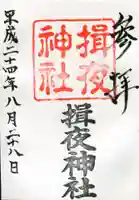 参拝
揖夜神社
揖夜神社
平成二十四年八月二十八日